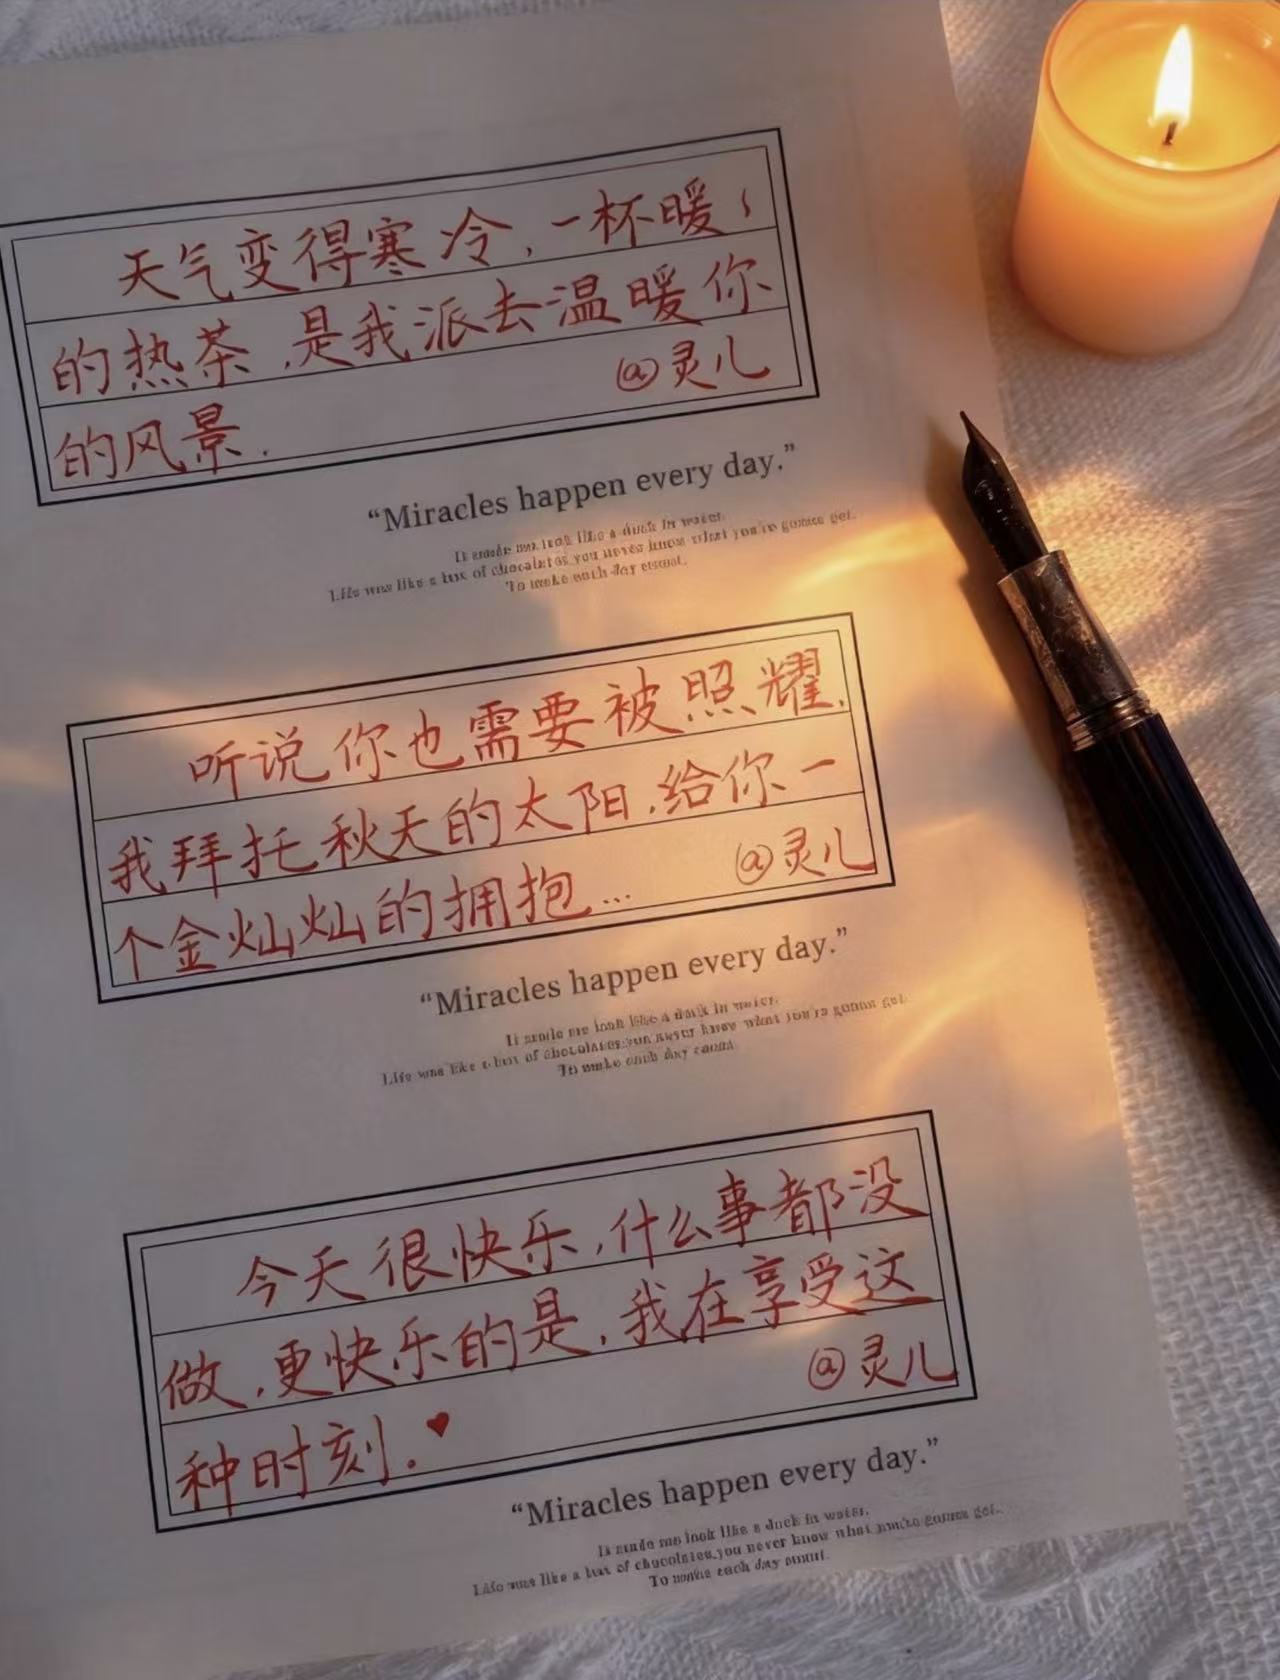 天气变得寒冷，一杯暖
的热茶，是我派去温暖你
的风景. @灵儿
“Miracles happen every day.”
It made me look like a duck in water.
Life was like a box of chocolates,you never know what you're gonna get.
To make each day count.
听说你也需要被照耀，
我拜托秋天的太阳，给你一
个金灿灿的拥抱... @灵儿
“Miracles happen every day.”
It made me look like a duck in water.
Life was like a box of chocolates,you never know what you're gonna get.
To make each day count.
今天很快乐，什么事都没
做，更快乐的是，我在享受这
种时刻. ♥ @灵儿
“Miracles happen every day.”
It made me look like a duck in water.
Life was like a box of chocolates,you never know what you're gonna get.
To make each day count.